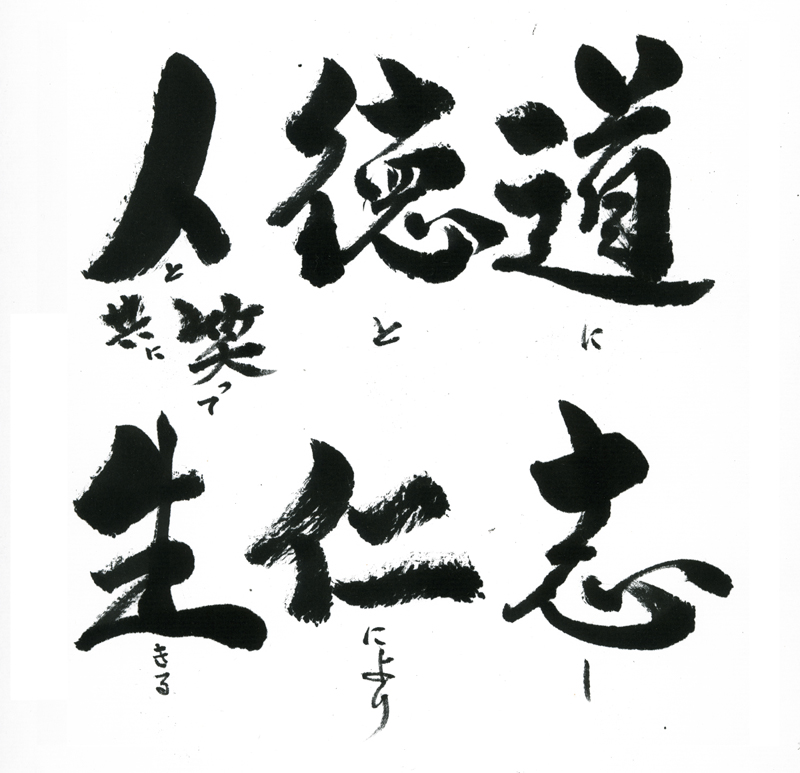 道に志し
徳と仁により
人と笑って共に生きる